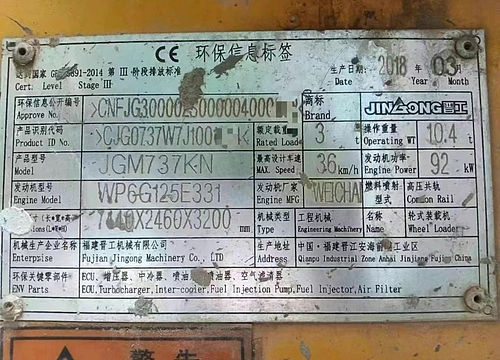 CE 环保信息标签
达到国家 GB 20891-2014 第 III 阶段排放标准
Cert. Level Stage III
生产日期: 2018 年 03 月
Date Year Month
环保信息公开编号
Approve No.
商标
Brand
JINGONG晋工
产品识别代码
Product ID No.
额定载重
Rated Load
3 t
操作重量
Operating WT
10.4 t
产品型号
Model
JGM737KN
最高设计车速
MAX. Speed
36 km/h
发动机功率
Engine Power
92 kw
发动机型号
Engine Model
WP6G125E331
发动机厂家
Engine MFG
WEICHAI
燃料喷射型式
高压共轨
Common Rail
X2460X3200 mm
机械类型
Type
工程机械
Engineering Machinery
名称
Name
轮式装载机
Wheel Loader
机械生产企业
Enterpise
福建晋工机械有限公司
Fujian Jingong Machinery Co., LTD
生产地址
Address
中国·福建晋江安海 工业区
Qianpu Industrial Zone Anhai Jinjiang Fujian China
环保关键零部件
ENV Parts
ECU、增压器、中冷器、喷油 喷油器、空气滤清器
ECU,Turbocharger,Inter-cooler,Fuel Injection Pump,Fuel Injector,Air Filter
警 告